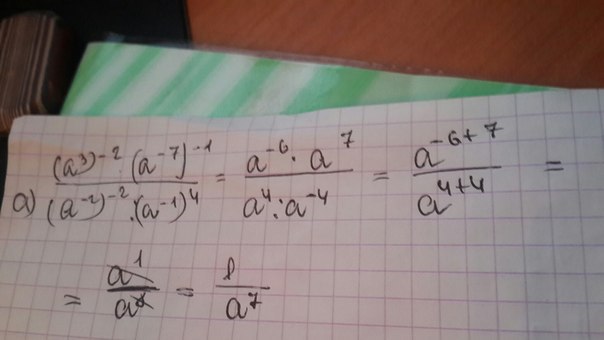 а) (a³)⁻² · (a⁻⁷)⁻¹ / (a⁻²)⁻² : (a⁻¹)⁴ = a⁻⁶ · a⁷ / a⁴ : a⁻⁴ = a⁻⁶⁺⁷ / a⁴⁺⁴ =
= a¹ / a⁸ = 1 / a⁷